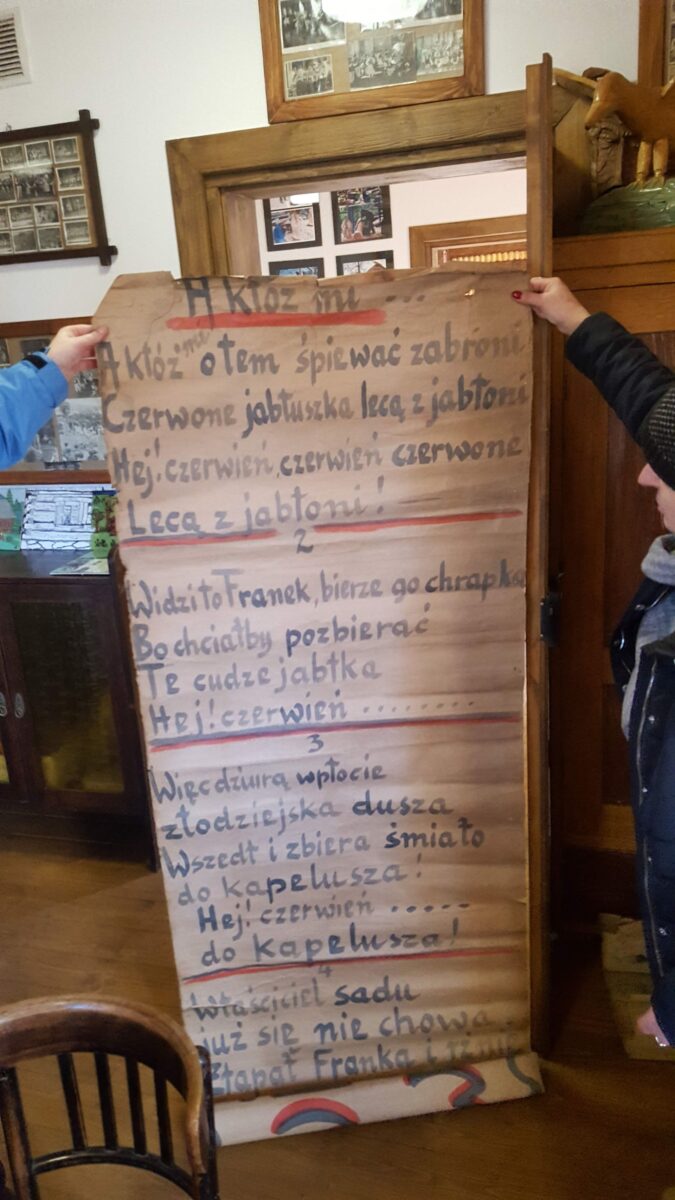 A któż mi ...
A któż mi o tem śpiewać zabroni
Czerwone jabłuszka lecą z jabłoni
Hej! czerwień, czerwień czerwone
Lecą z jabłoni!
2
Widzi to Franek, bierze go chrapka
Bo chciałby pozbierać
Te cudze jabłka
Hej! czerwień ........
3
Więc dziurą wpłocie
złodziejska dusza
Wszedł i zbiera śmiało
do kapelusza!
Hej! czerwień .....
do kapelusza!
4
Właściciel sadu
już się nie chowa
Złapał Franka i rżnie